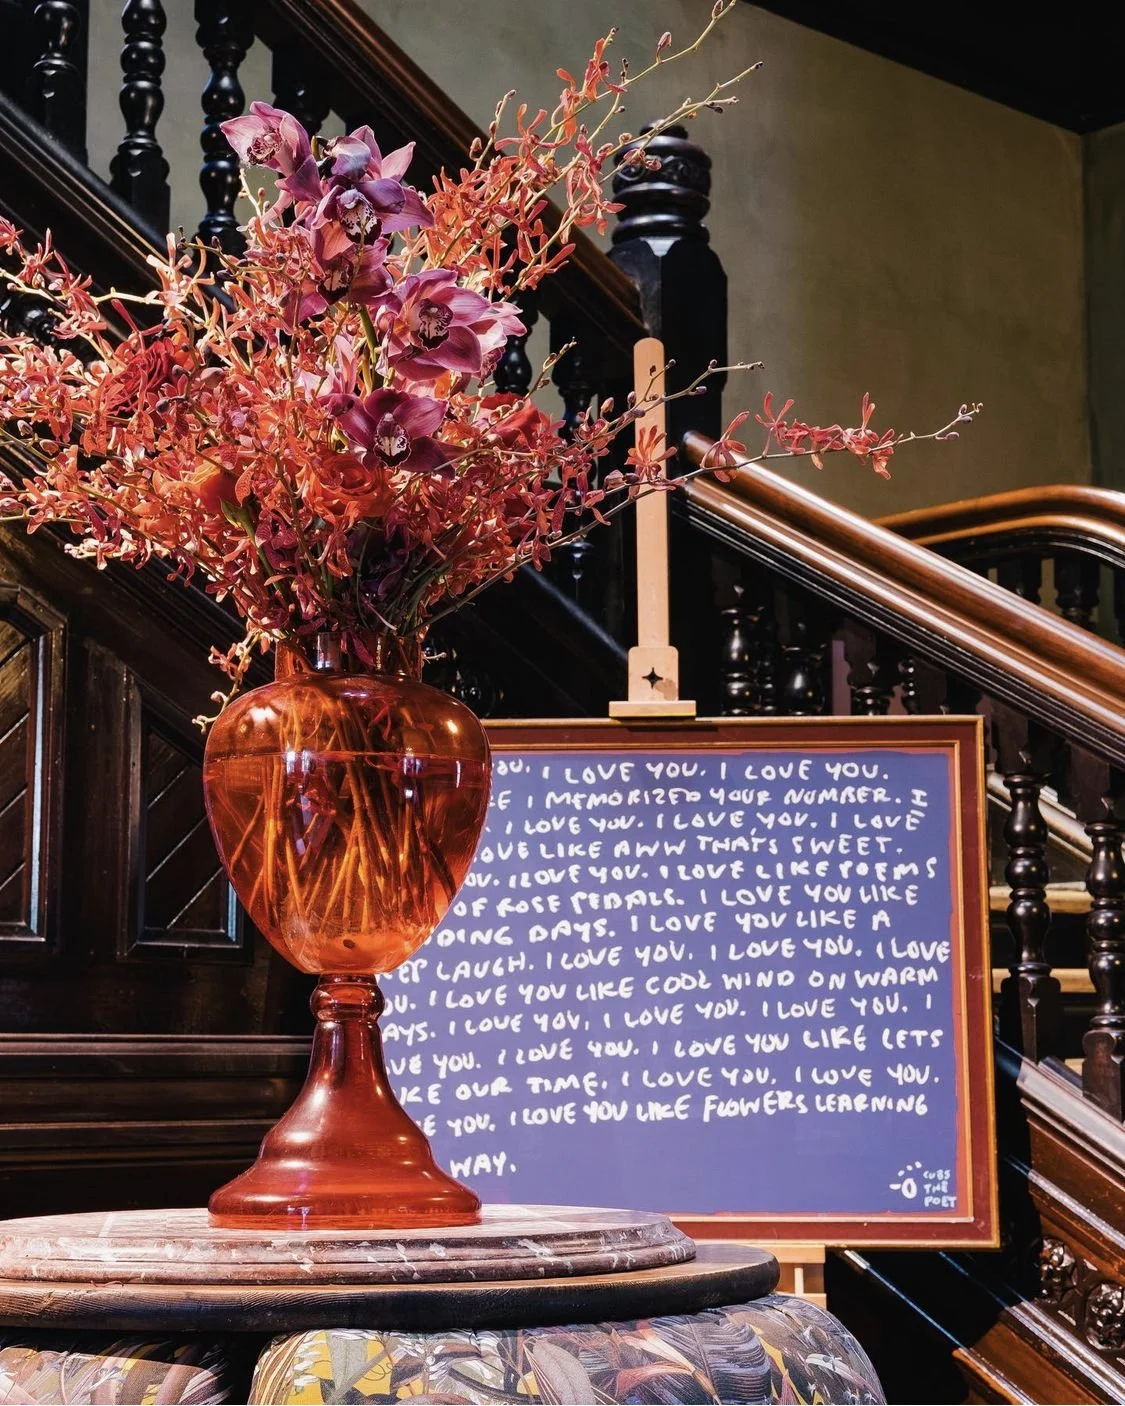 I LOVE YOU. I LOVE YOU.
I MEMORIZED YOUR NUMBER. I
I LOVE YOU. I LOVE YOU. I LOVE
LIKE AWW THAT'S SWEET.
I LOVE YOU. I LOVE LIKE POEMS
OF ROSE PEDALS. I LOVE YOU LIKE
DAYS. I LOVE YOU LIKE A
LAUGH. I LOVE YOU. I LOVE YOU. I LOVE
I LOVE YOU LIKE COOL WIND ON WARM
I LOVE YOU. I LOVE YOU. I LOVE YOU. I
YOU. I LOVE YOU. I LOVE YOU LIKE LETS
OUR TIME. I LOVE YOU. I LOVE YOU.
YOU. I LOVE YOU LIKE FLOWERS LEARNING
WAY.
CUBS
THE
POET